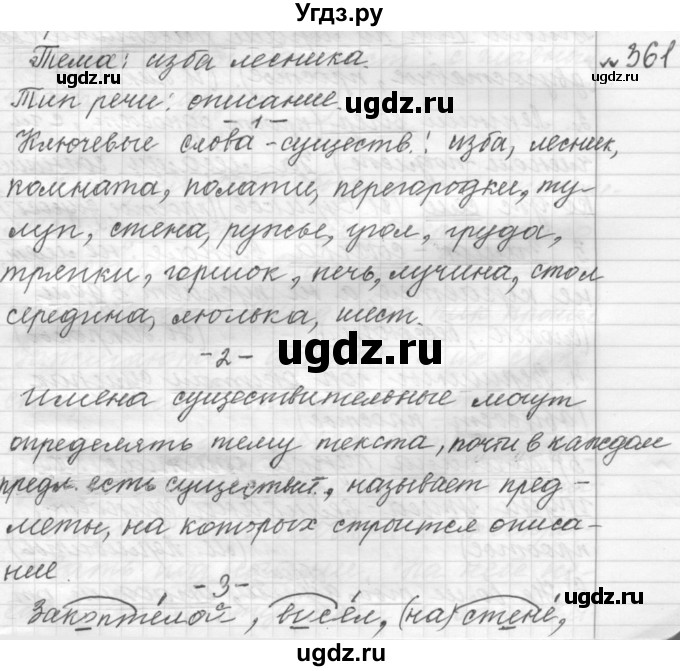 Угдз.ру
Тема: изба лесника. №361
Тип речи: описание.
-1-
Ключевые слова - существ.: изба, лесник,
комната, полати, перегородки, ту-
луп, стена, ружье, угол, груда,
тряпки, горшок, печь, лучина, стол
середина, люлька, шест.
-2-
Имена существительные могут
определять тему текста, почти в каждом
предл. есть существит., называет пред-
меты, на которых строится описа-
ние.
-3-
Закоптéлой, висéл, (на) стенé,
ugdz.ru
ugdz.ru
ugdz.ru
ugdz.ru
ugdz.ru
ugdz.ru